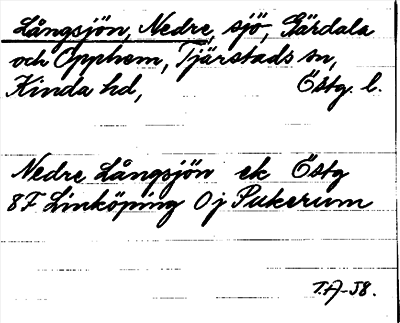 Långsjön, Nedre, sjö, Gärdala
och Opphem, Tjärstads sn,
Kinda hd, Östg. l.
Nedre Långsjön ek Östg
8F Linköping 0j Pukerum
T.A-58.